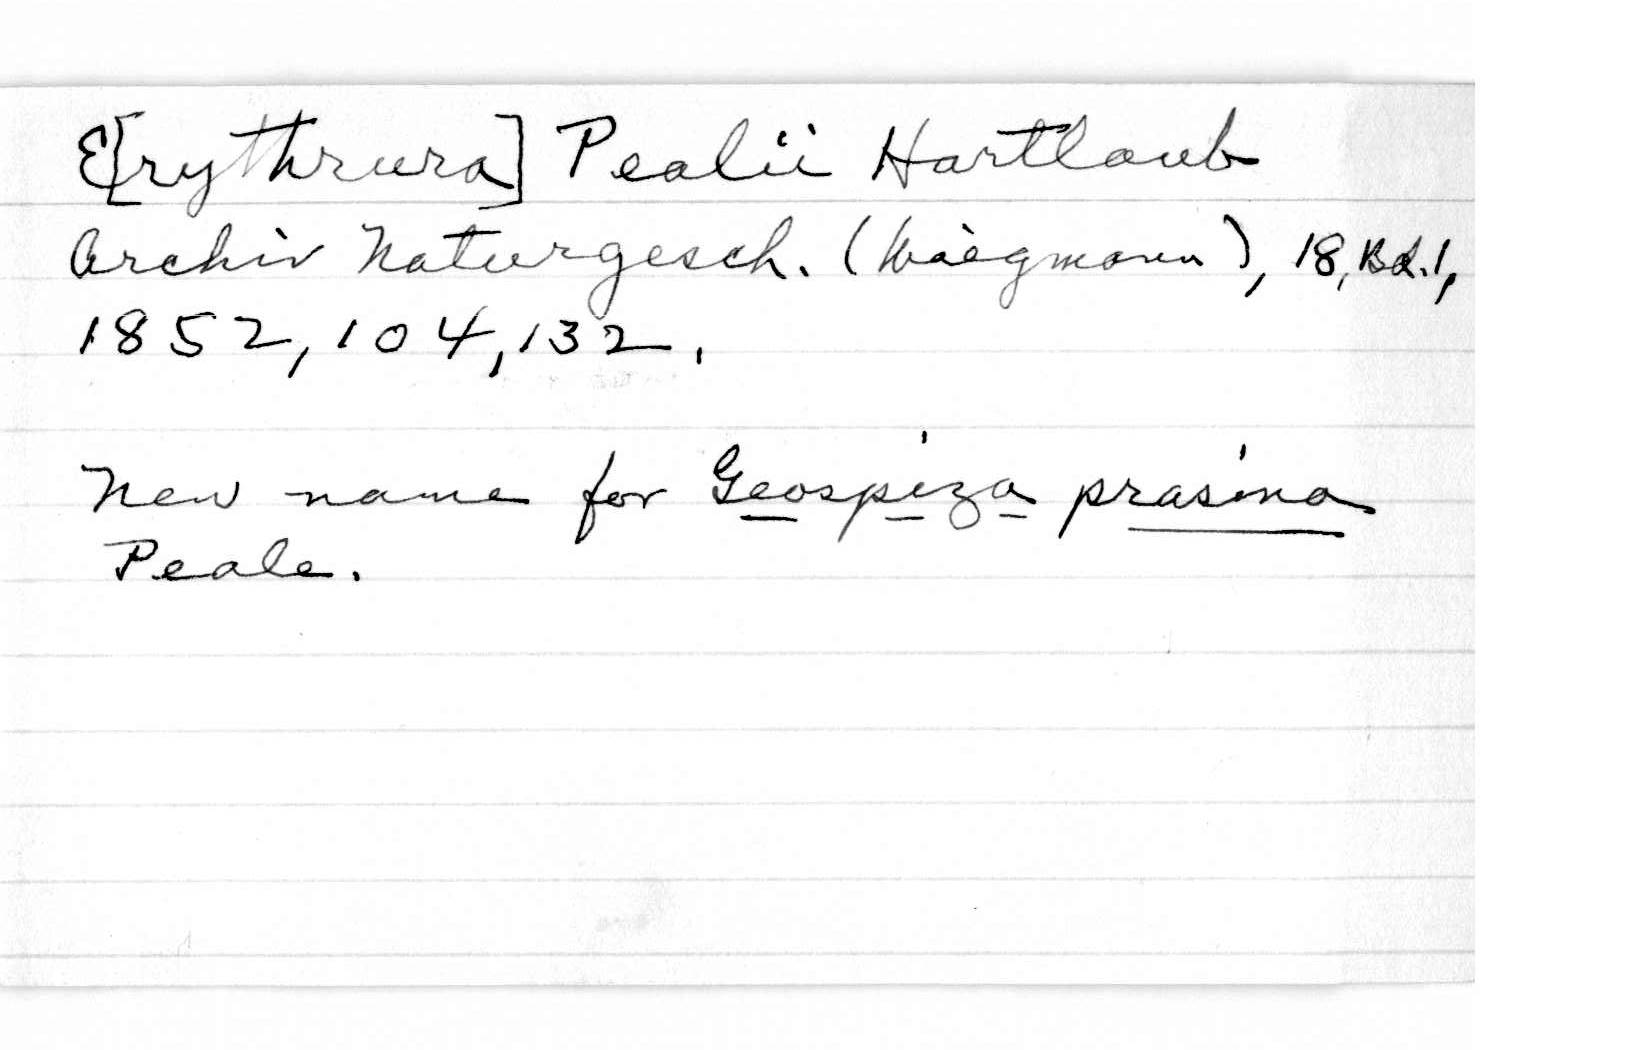 E[rythrura] Pealii Hartlaub
Archiv Naturgesch. (Wiegmann), 18, Bd. 1,
1852, 104, 132.
New name for Geospiza prasina
Peale.